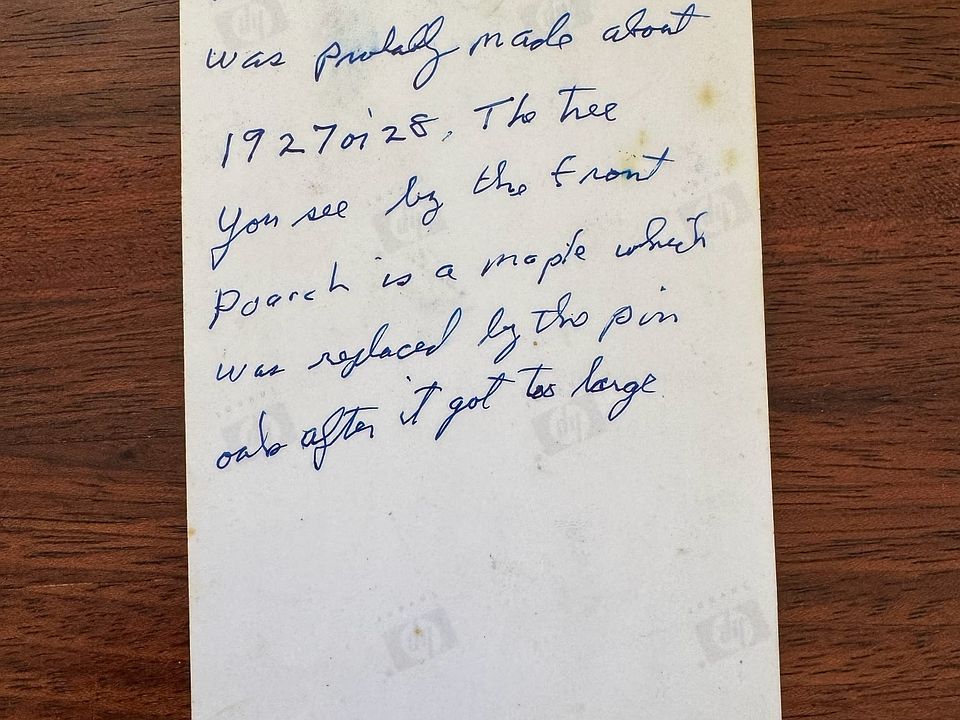 was probally made about
1927 or 28. The tree
you see by the front
poarch is a maple which
was replaced by the pin
oak after it got too large